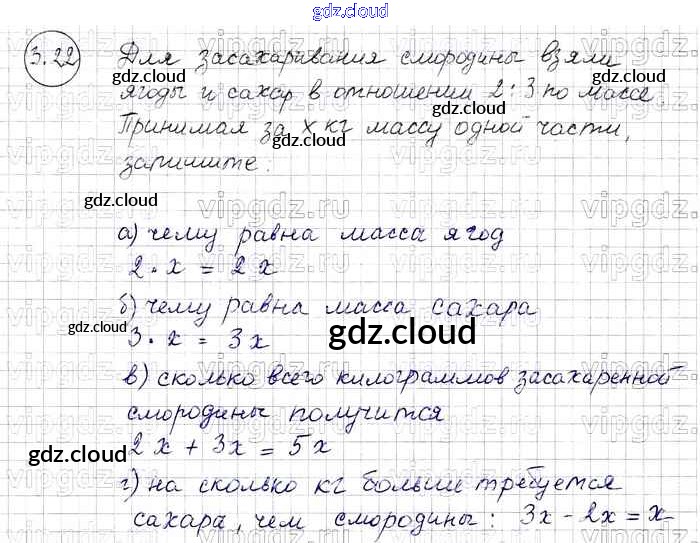 gdz.cloud
3.22 Для засахаривания смородины взяли
gdz.cloud gdz.cloud
ягоды и сахар в отношении 2:3 по массе.
Принимая за х кг массу одной части,
запишите:
gdz.cloud gdz.cloud
а) чему равна масса ягод
2 · х = 2х
б) чему равна масса сахара
gdz.cloud gdz.cloud
3 · х = 3х
в) сколько всего килограммов засахаренной
смородины получится
2х + 3х = 5х
gdz.cloud gdz.cloud
г) на сколько кг больше требуется
сахара, чем смородины: 3х - 2х = х
gdz.cloud gdz.cloud